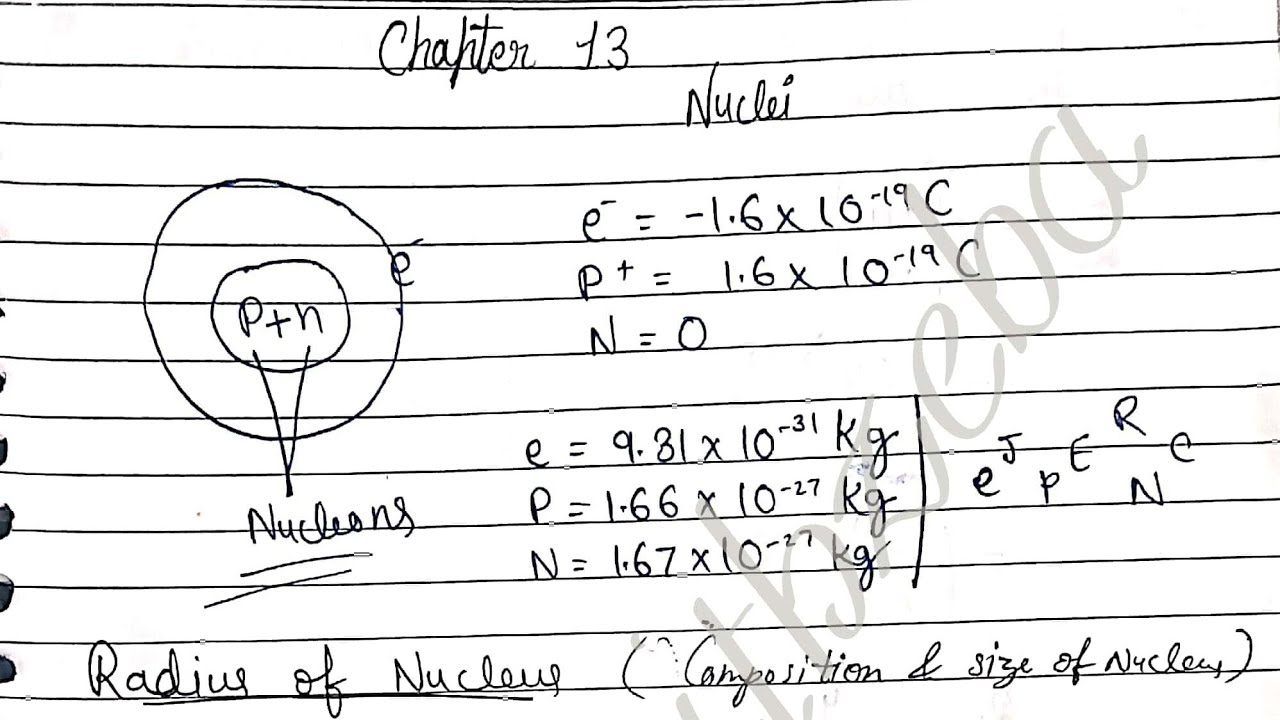 Chapter 13
Nuclei
e⁻ = -1.6 × 10⁻¹⁹ C
e⁻
P⁺ = 1.6 × 10⁻¹⁹ C
P+n
N = 0
e = 9.81 × 10⁻³¹ Kg
P = 1.66 × 10⁻²⁷ Kg
N = 1.67 × 10⁻²⁷ kg
e J P E R N C
Nucleons
Radius of Nucleus (Composition & size of Nucleus)